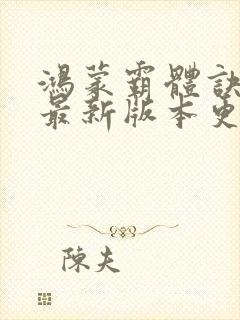 鴻蒙霸體訣
最新版本更
陳夫